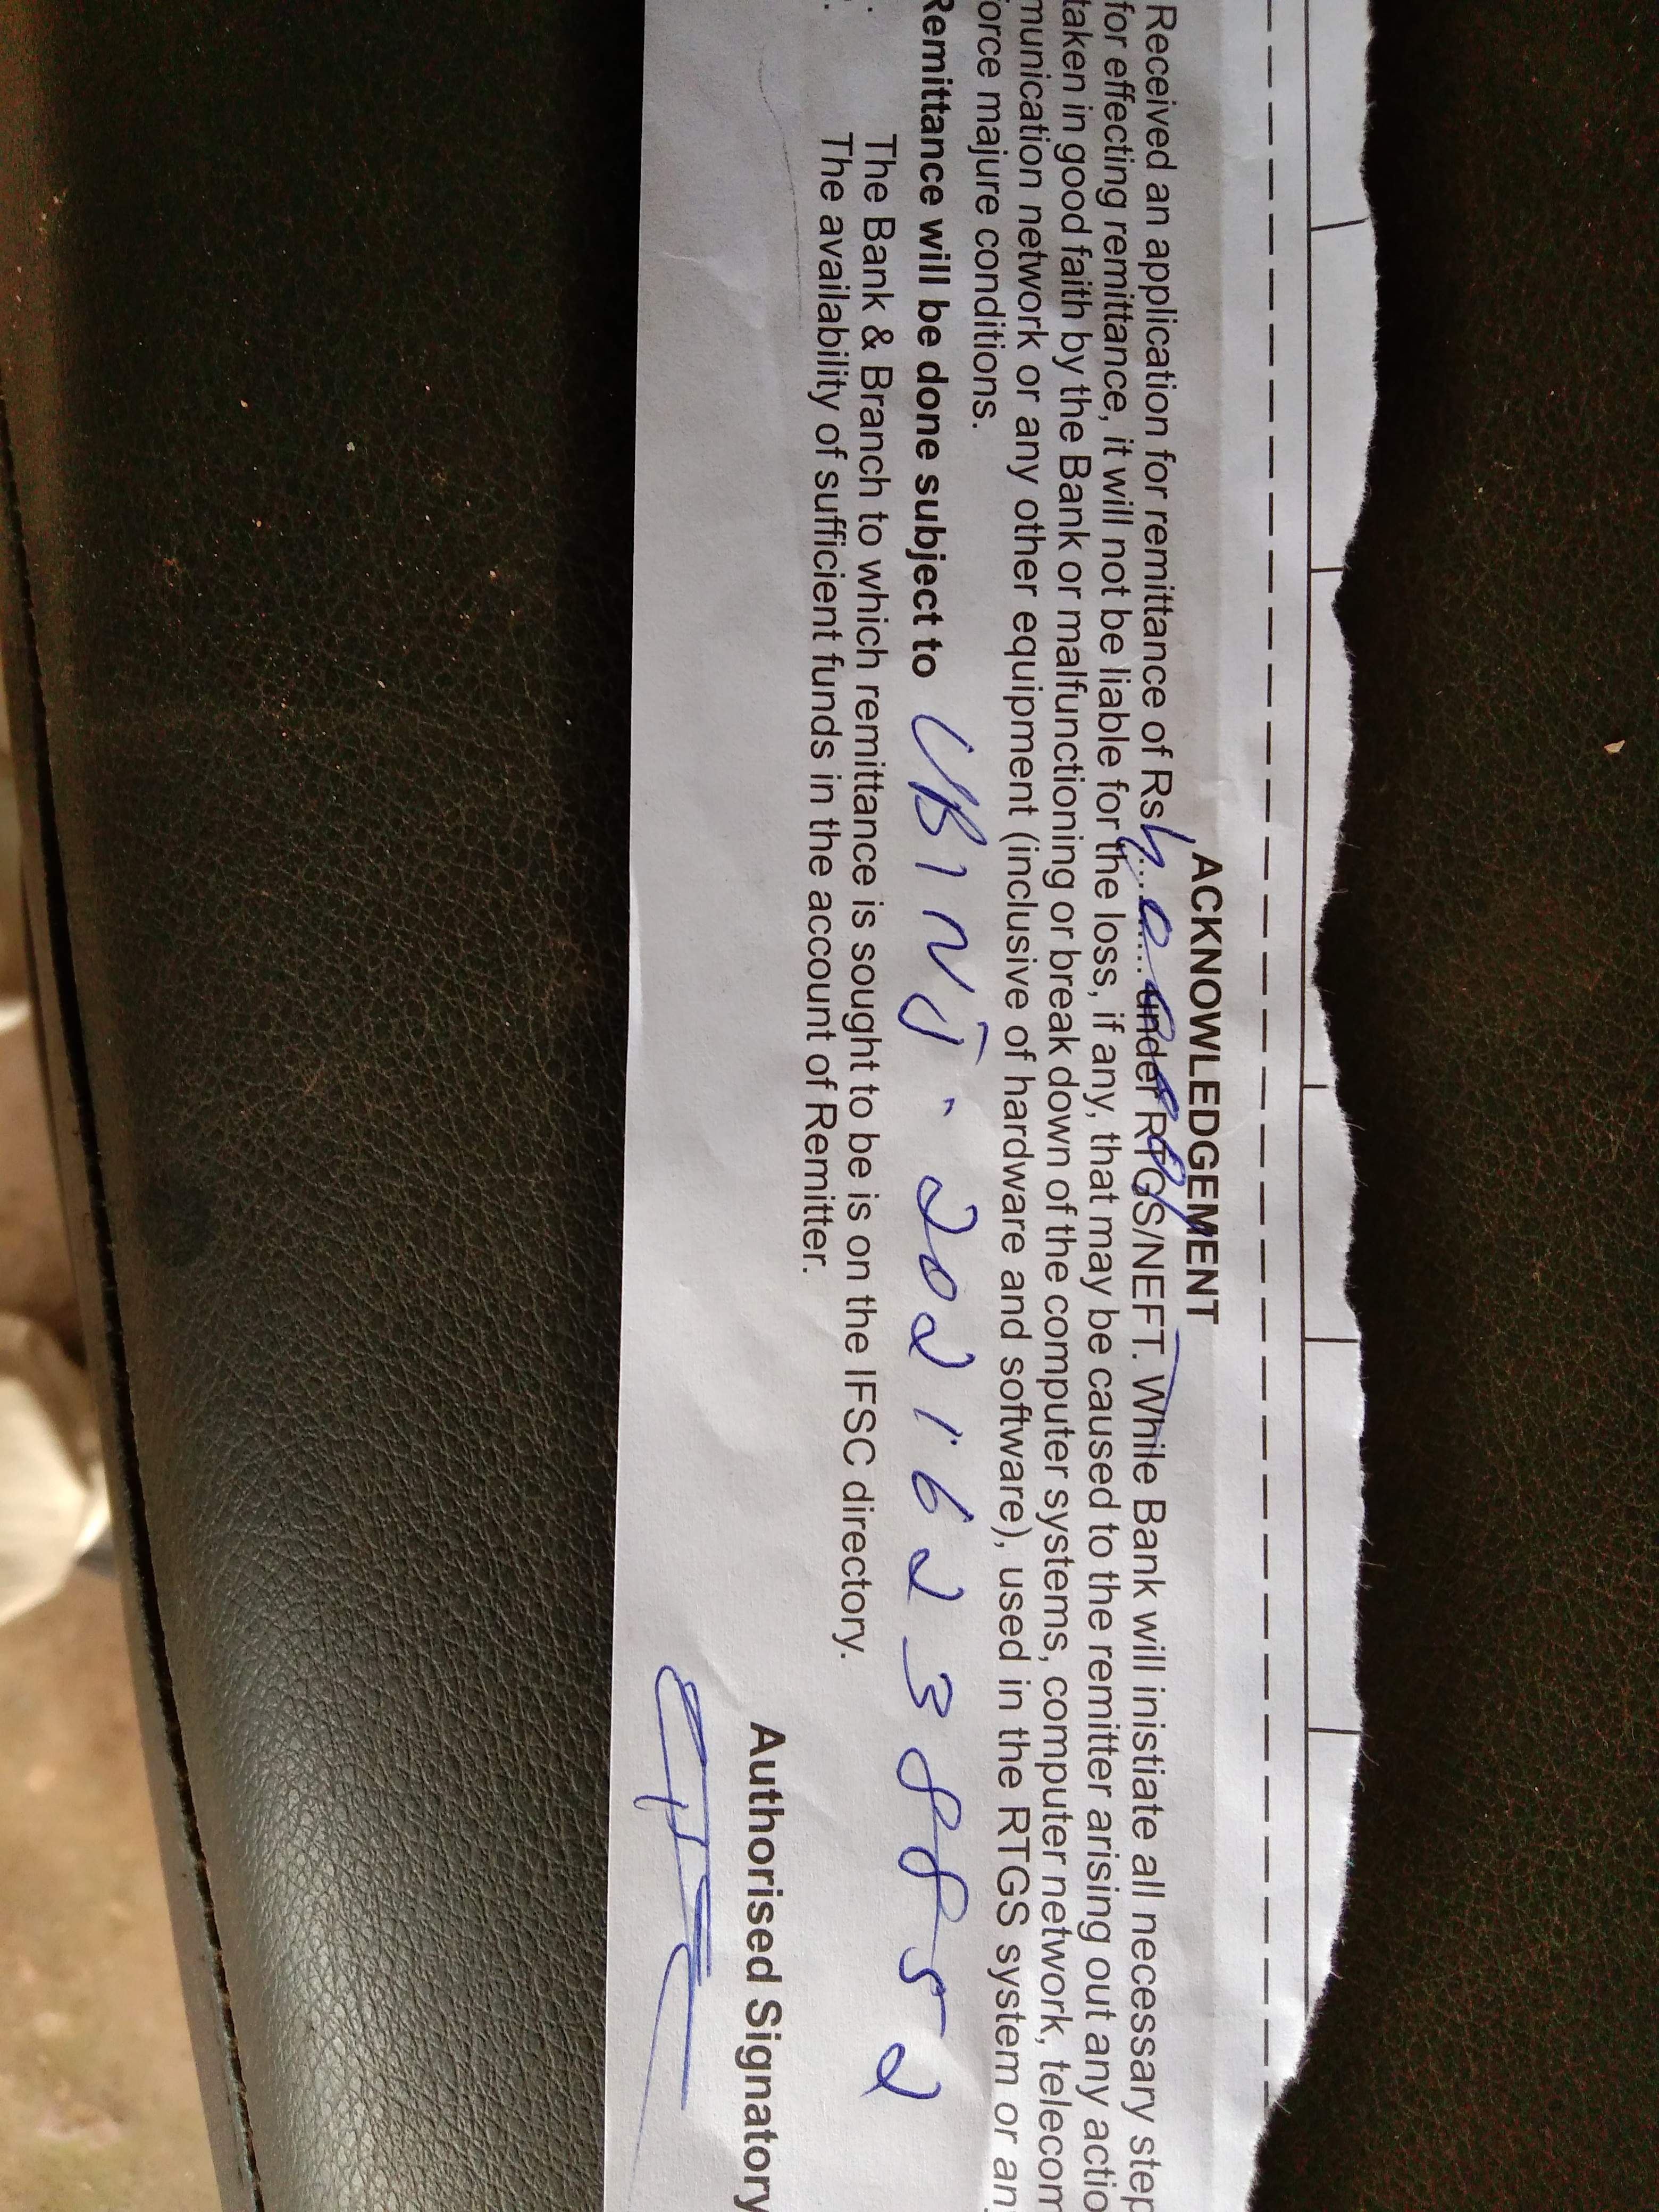 ACKNOWLEDGEMENT
Received an application for remittance of Rs ........ under RTGS/NEFT. While Bank will inistiate all necessary step
for effecting remittance, it will not be liable for the loss, if any, that may be caused to the remitter arising out any actio
taken in good faith by the Bank or malfunctioning or break down of the computer systems, computer network, telecom
munication network or any other equipment (inclusive of hardware and software), used in the RTGS system or an
orce majure conditions.
Remittance will be done subject to UBINJ 20216238852
The Bank & Branch to which remittance is sought to be is on the IFSC directory.
The availability of sufficient funds in the account of Remitter.
Authorised Signatory